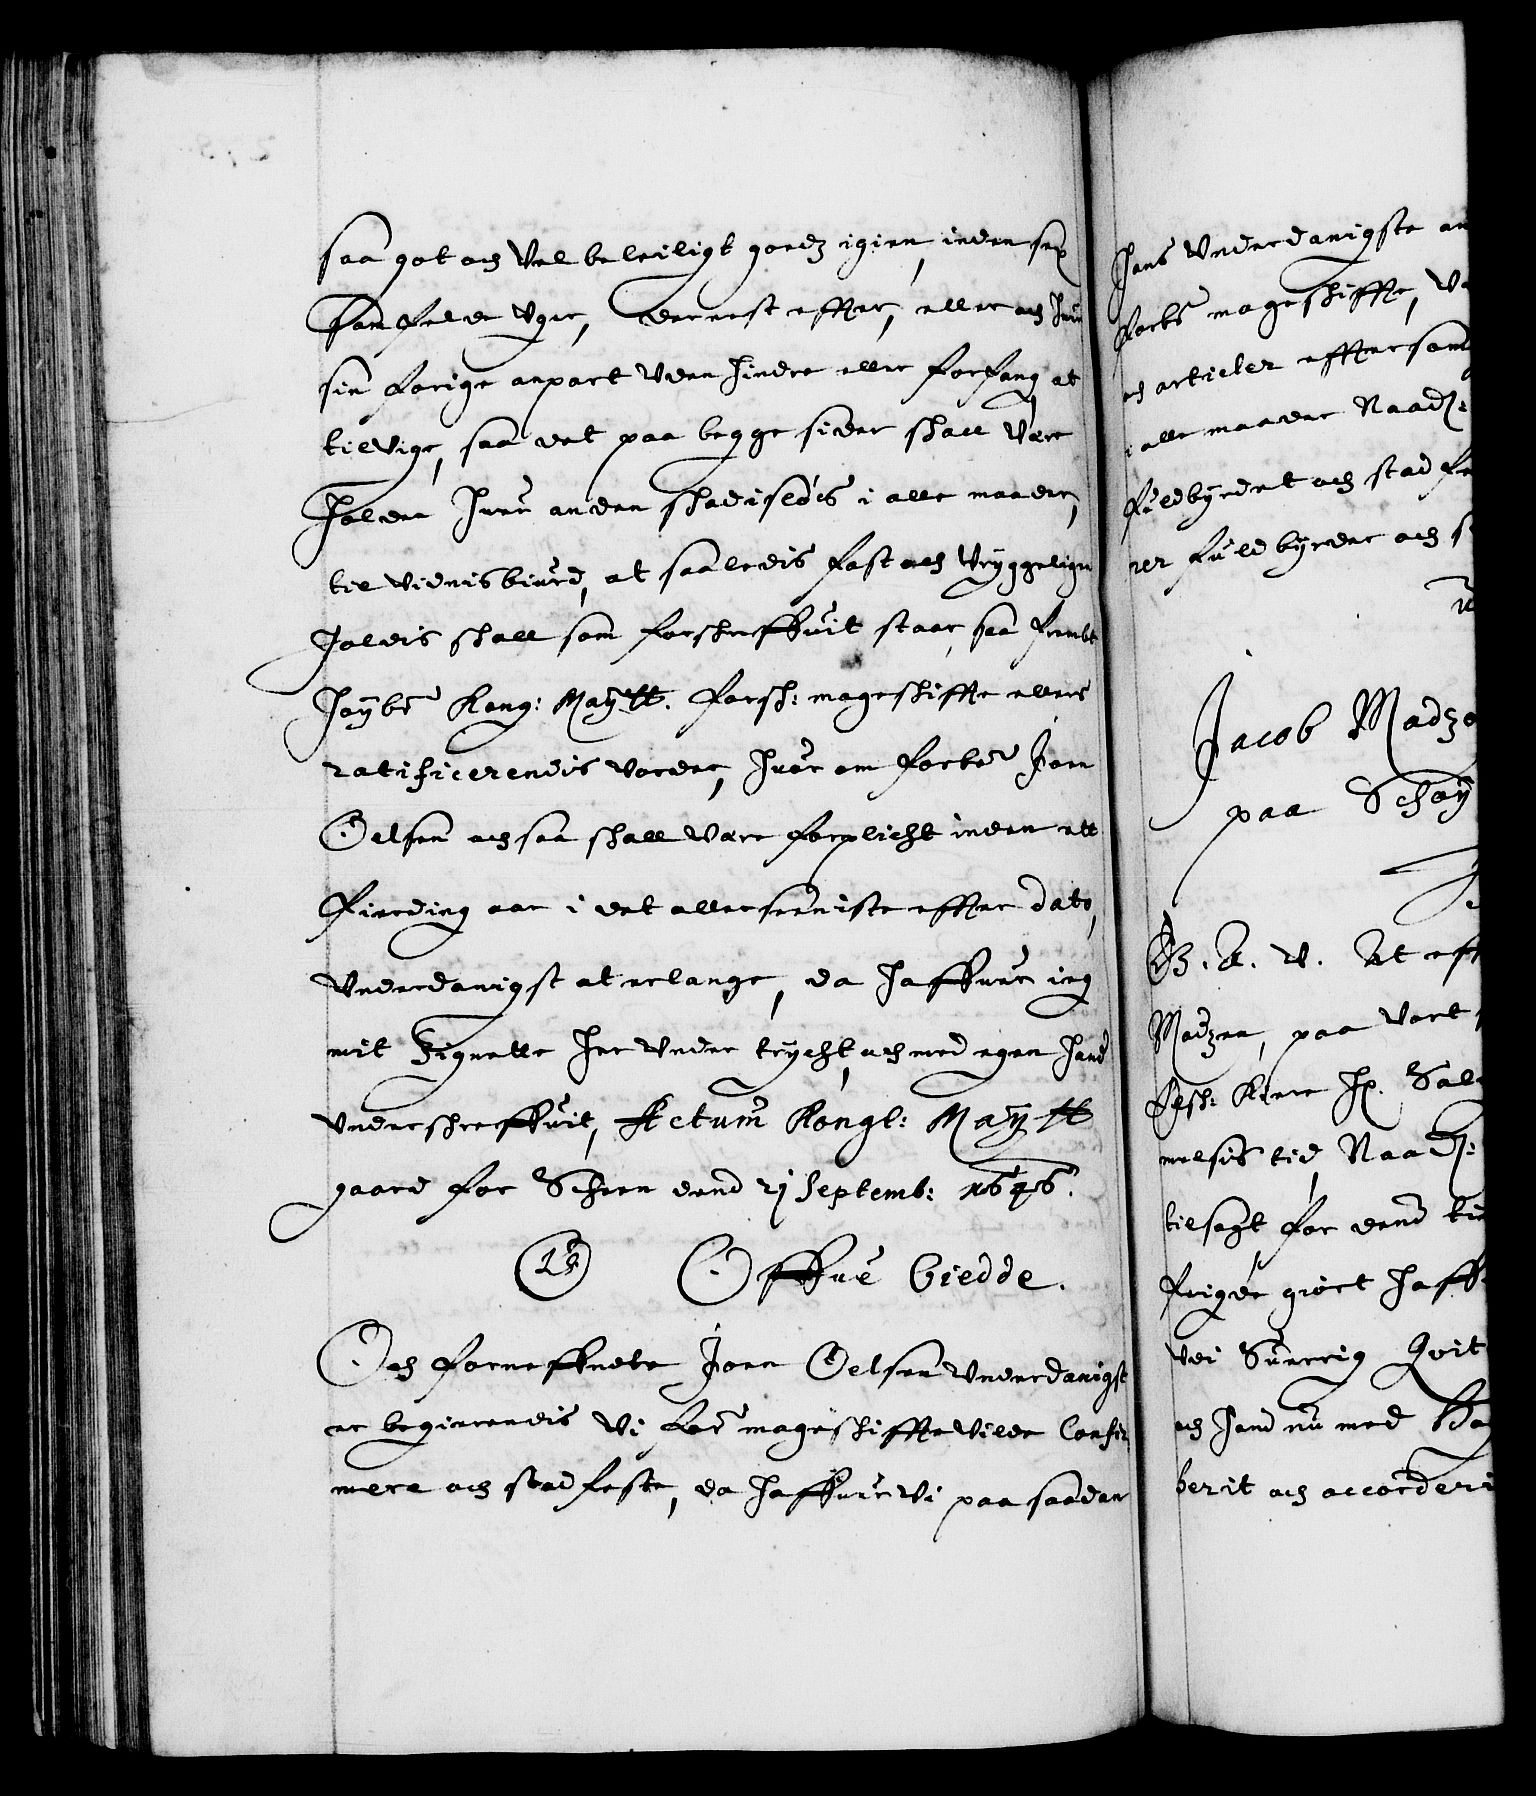 saa got och Vel beleiligt goedz igien, inden sex
samfelde Vger, dernest effter, eller och huer
sin forige anpart Vden hinder eller forfang at
tilvige, saa det paa begge sider schall Vere
holden huer anden schadisløes i alle maader,
til Vidnisbiurd, at saaledis fast och Vryggeligen
holdis schall som forschreffuit staar, saa frembt
høybe: Kong: Maytt. forsch: mageschiffte ellers
ratificerendis vorder, huor om forbe: Joen
Oelsen och saa schall were forplicht inden ett
fierding aar i det allerseeniste effter dato,
Vnderdanigst at erlange, da haffuer ieg
mit Zignette her vnder trycht, och med egen hand
vnderschreffuit, Actum Kongl: Maytt
gaard for Scheen dend 21 Septemb: 1646.
LS Offue Giedde.
Och forneffnete Joen Oelsen Vnderdanigst
er begierendis Vi bete: mageschiffte Vilde Confir
mere och stadfeste, da haffuer Vi paa saadan
hans Vnderdanigste an
forbe: mageschiffte, V
och articler efftersom
i alle maader Naad:
fuldbyrdet och stadfe
rer fuldbyrder och s
Jacob Madzø
paa Schøy
G. A. V. At eff
Madzen, paa Vort
Elsch: Kiere H. Sal
melsis tid, Naad:
tilsagt for dend ti
feigde giort haff
Vdi Suerrig Quit
och hand nu med
berit och accorderi